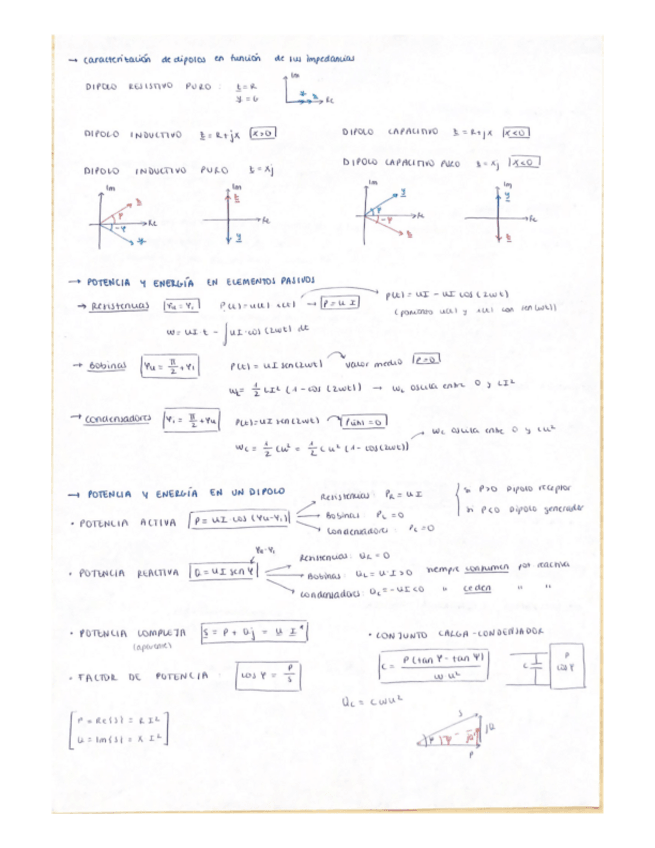 → Caracterización de dipolos en función de sus impedancias
DIPOLO RESISTIVO PURO: Z = R
Y = G
Im
Re
DIPOLO INDUCTIVO Z = R+jX X>0
DIPOLO CAPACITIVO Z = R+jX X<0
DIPOLO INDUCTIVO PURO Z = Xj
DIPOLO CAPACITIVO PURO Z = Xj X<0
Im Z φ -φ Y Re
Im Z Y Re
Im Y φ -φ Z Re
Im Y Z Re
→ POTENCIA Y ENERGÍA EN ELEMENTOS PASIVOS
→ Resistencias φu = φi P(t) = u(t) i(t) → P = U I
p(t) = UI - UI cos (2wt)
(poniendo u(t) y i(t) con sen(wt))
w = UI t - ∫UI·cos (2wt) dt
→ Bobinas φu = π/2 + φi P(t) = UI sen(2wt) valor medio P=0
WL = 1/2 LI² (1 - cos (2wt)) → WL oscila entre 0 y LI²
→ Condensadores φi = π/2 + φu P(t) = UI sen(2wt) P(t) = 0
Wc = 1/2 Cu² = 1/2 C U² (1 - cos(2wt)) → Wc oscila entre 0 y CU²
→ POTENCIA Y ENERGÍA EN UN DIPOLO
· POTENCIA ACTIVA P = UI cos (φu-φi)
Resistencias: PR = UI
Bobinas: PL = 0
Condensadores: Pc = 0
si P>0 Dipolo receptor
si P<0 Dipolo generador
φu-φi
· POTENCIA REACTIVA Q = UI sen φ
Resistencias: QR = 0
Bobinas: QL = U·I>0 siempre consumen pot reactiva
Condensadores: Qc = -UI<0 " ceden " "
· POTENCIA COMPLEJA S = P + Qj = U I*
(aparente)
· FACTOR DE POTENCIA: cos φ = P/S
P = Re(S) = R I²
Q = Im(S) = X I²
· CONJUNTO CARGA-CONDENSADOR
C = P(tan φ - tan φ')/w U²
C P cos φ
Qc = CwU²
S jQ P